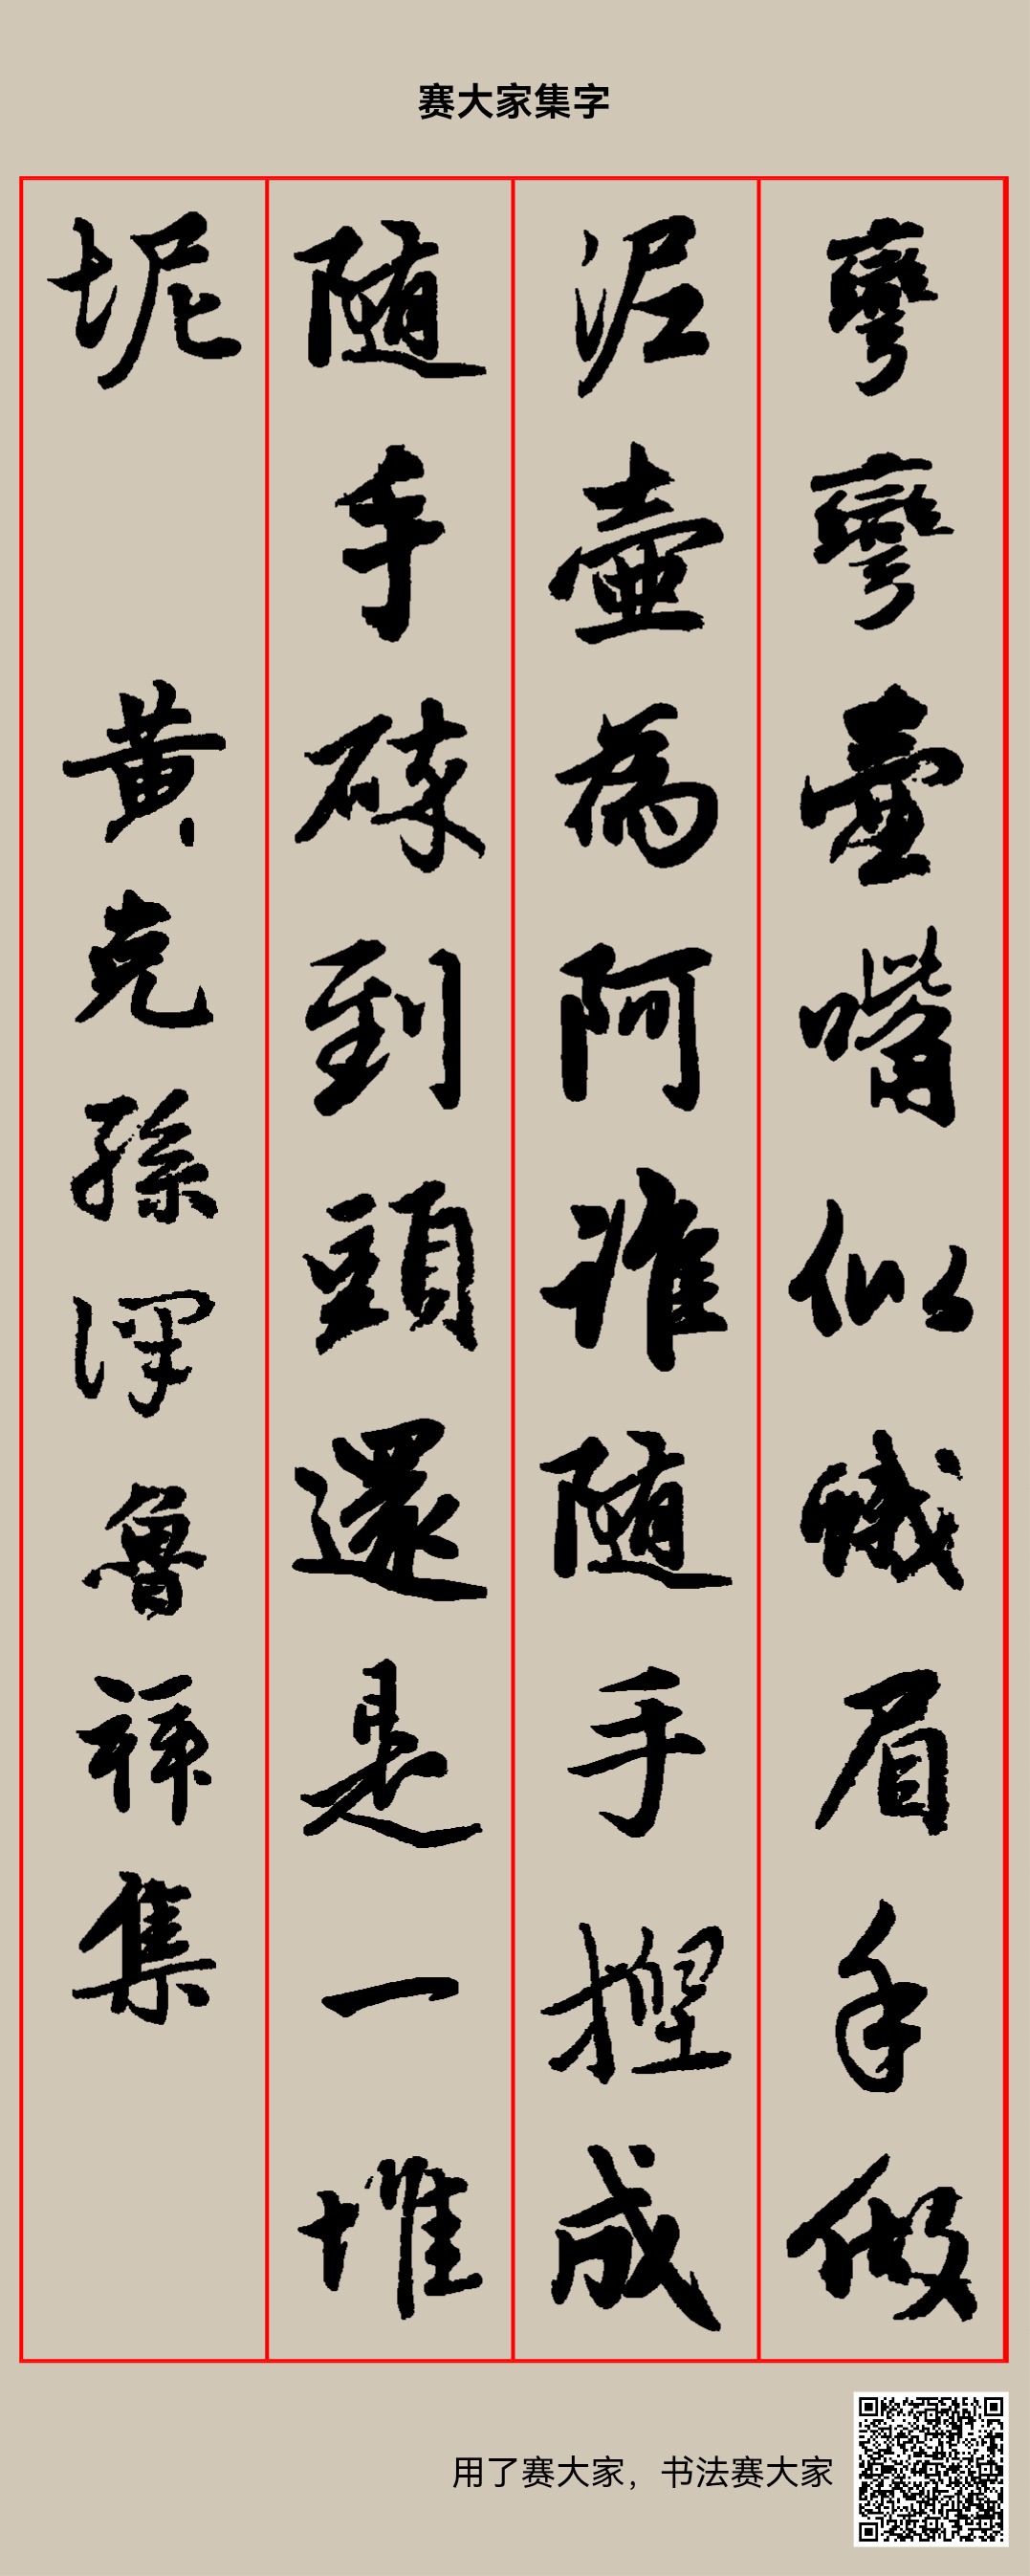 赛大家集字
彎彎壺嘴似蛾眉手做
泥壺為阿誰随手捏成
随手碎到頭還是一堆
坭黄克孫譯魯祥集
用了赛大家，书法赛大家